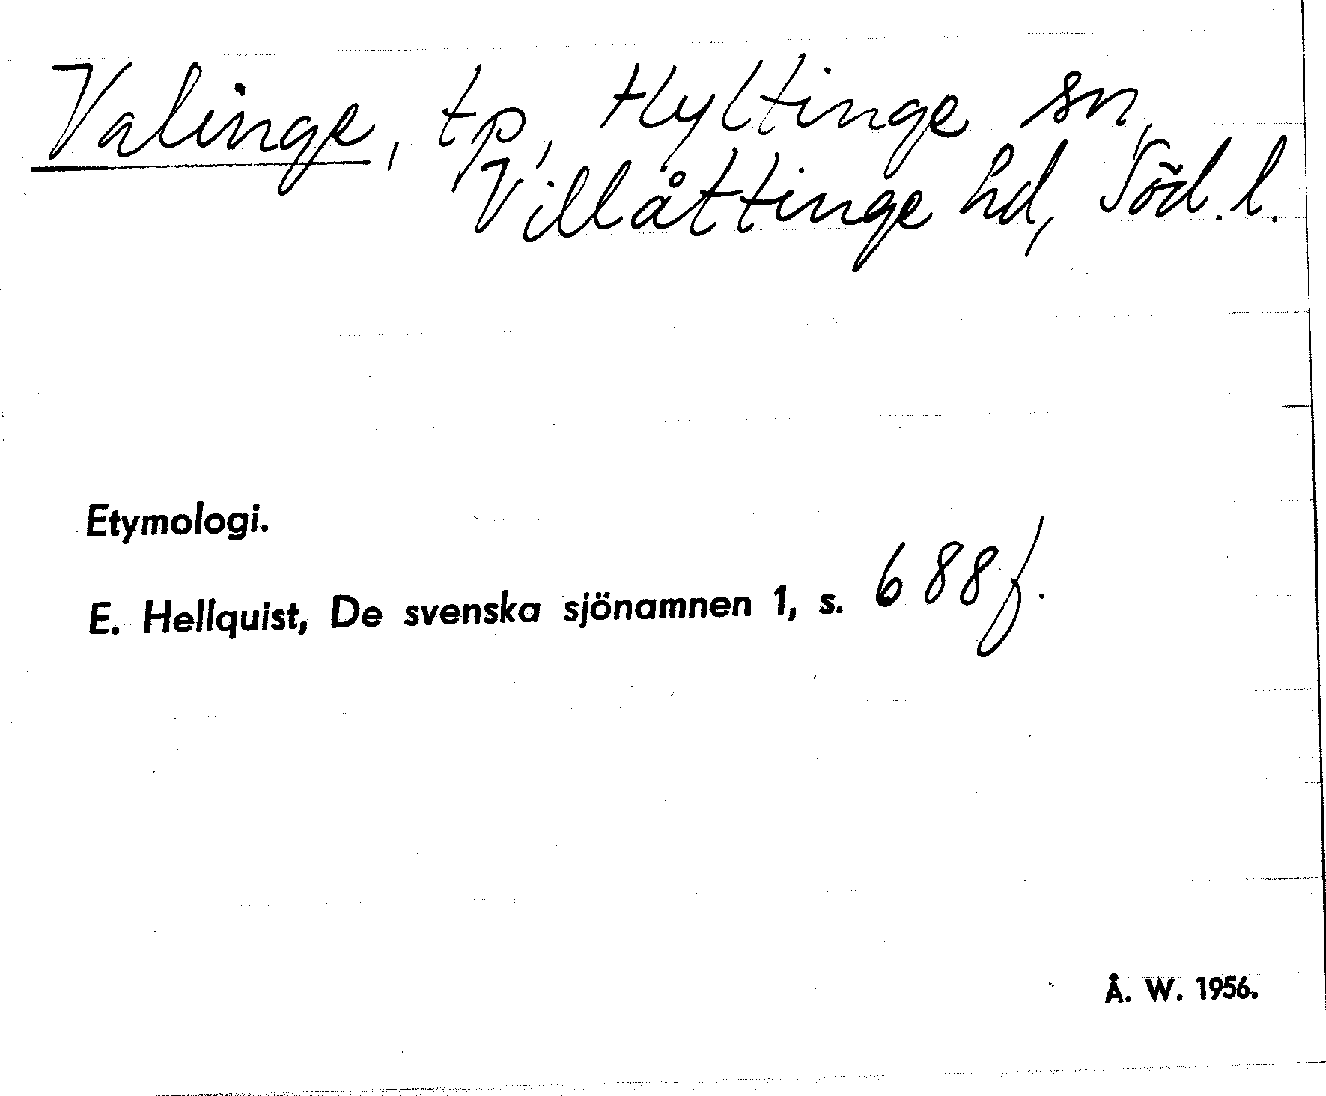 Valinge, tp, Hyltinge sn,
Villåttinge hd, Söd.l.
Etymologi.
E. Hellquist, De svenska sjönamnen 1, s. 688f.
Å. W. 1956.